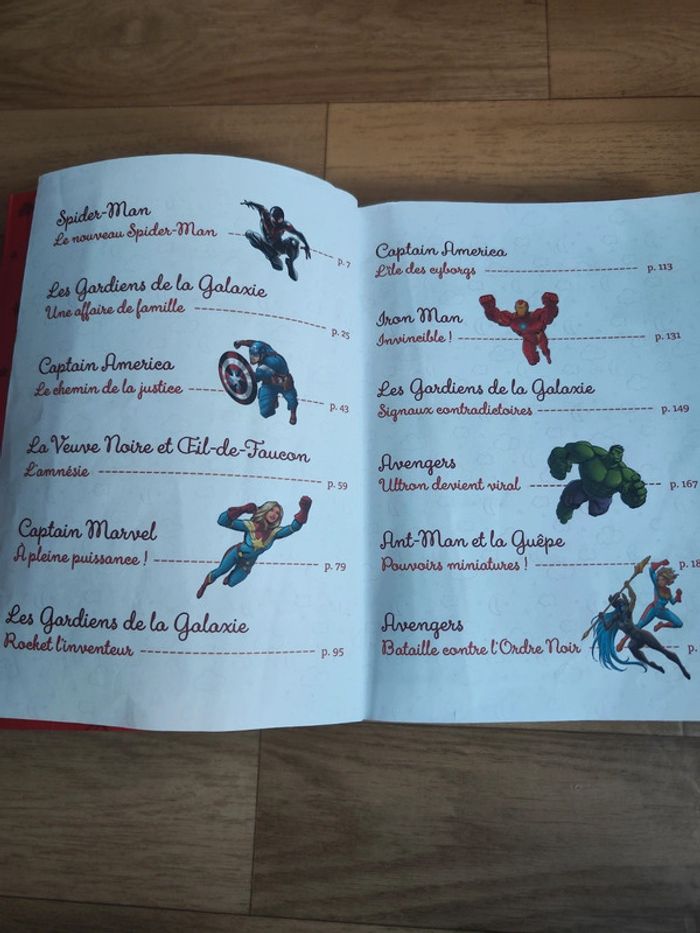 Spider-Man
Le nouveau Spider-Man p. 7
Les Gardiens de la Galaxie
Une affaire de famille p. 25
Captain America
Le chemin de la justice p. 43
La Veuve Noire et Œil-de-Faucon
L'amnésie p. 59
Captain Marvel
À pleine puissance ! p. 79
Les Gardiens de la Galaxie
Rocket l'inventeur p. 95
Captain America
L'île des cyborgs p. 113
Iron Man
Invincible ! p. 131
Les Gardiens de la Galaxie
Signaux contradictoires p. 149
Avengers
Ultron devient viral p. 167
Ant-Man et la Guêpe
Pouvoirs miniatures ! p. 18
Avengers
Bataille contre l'Ordre Noir p.